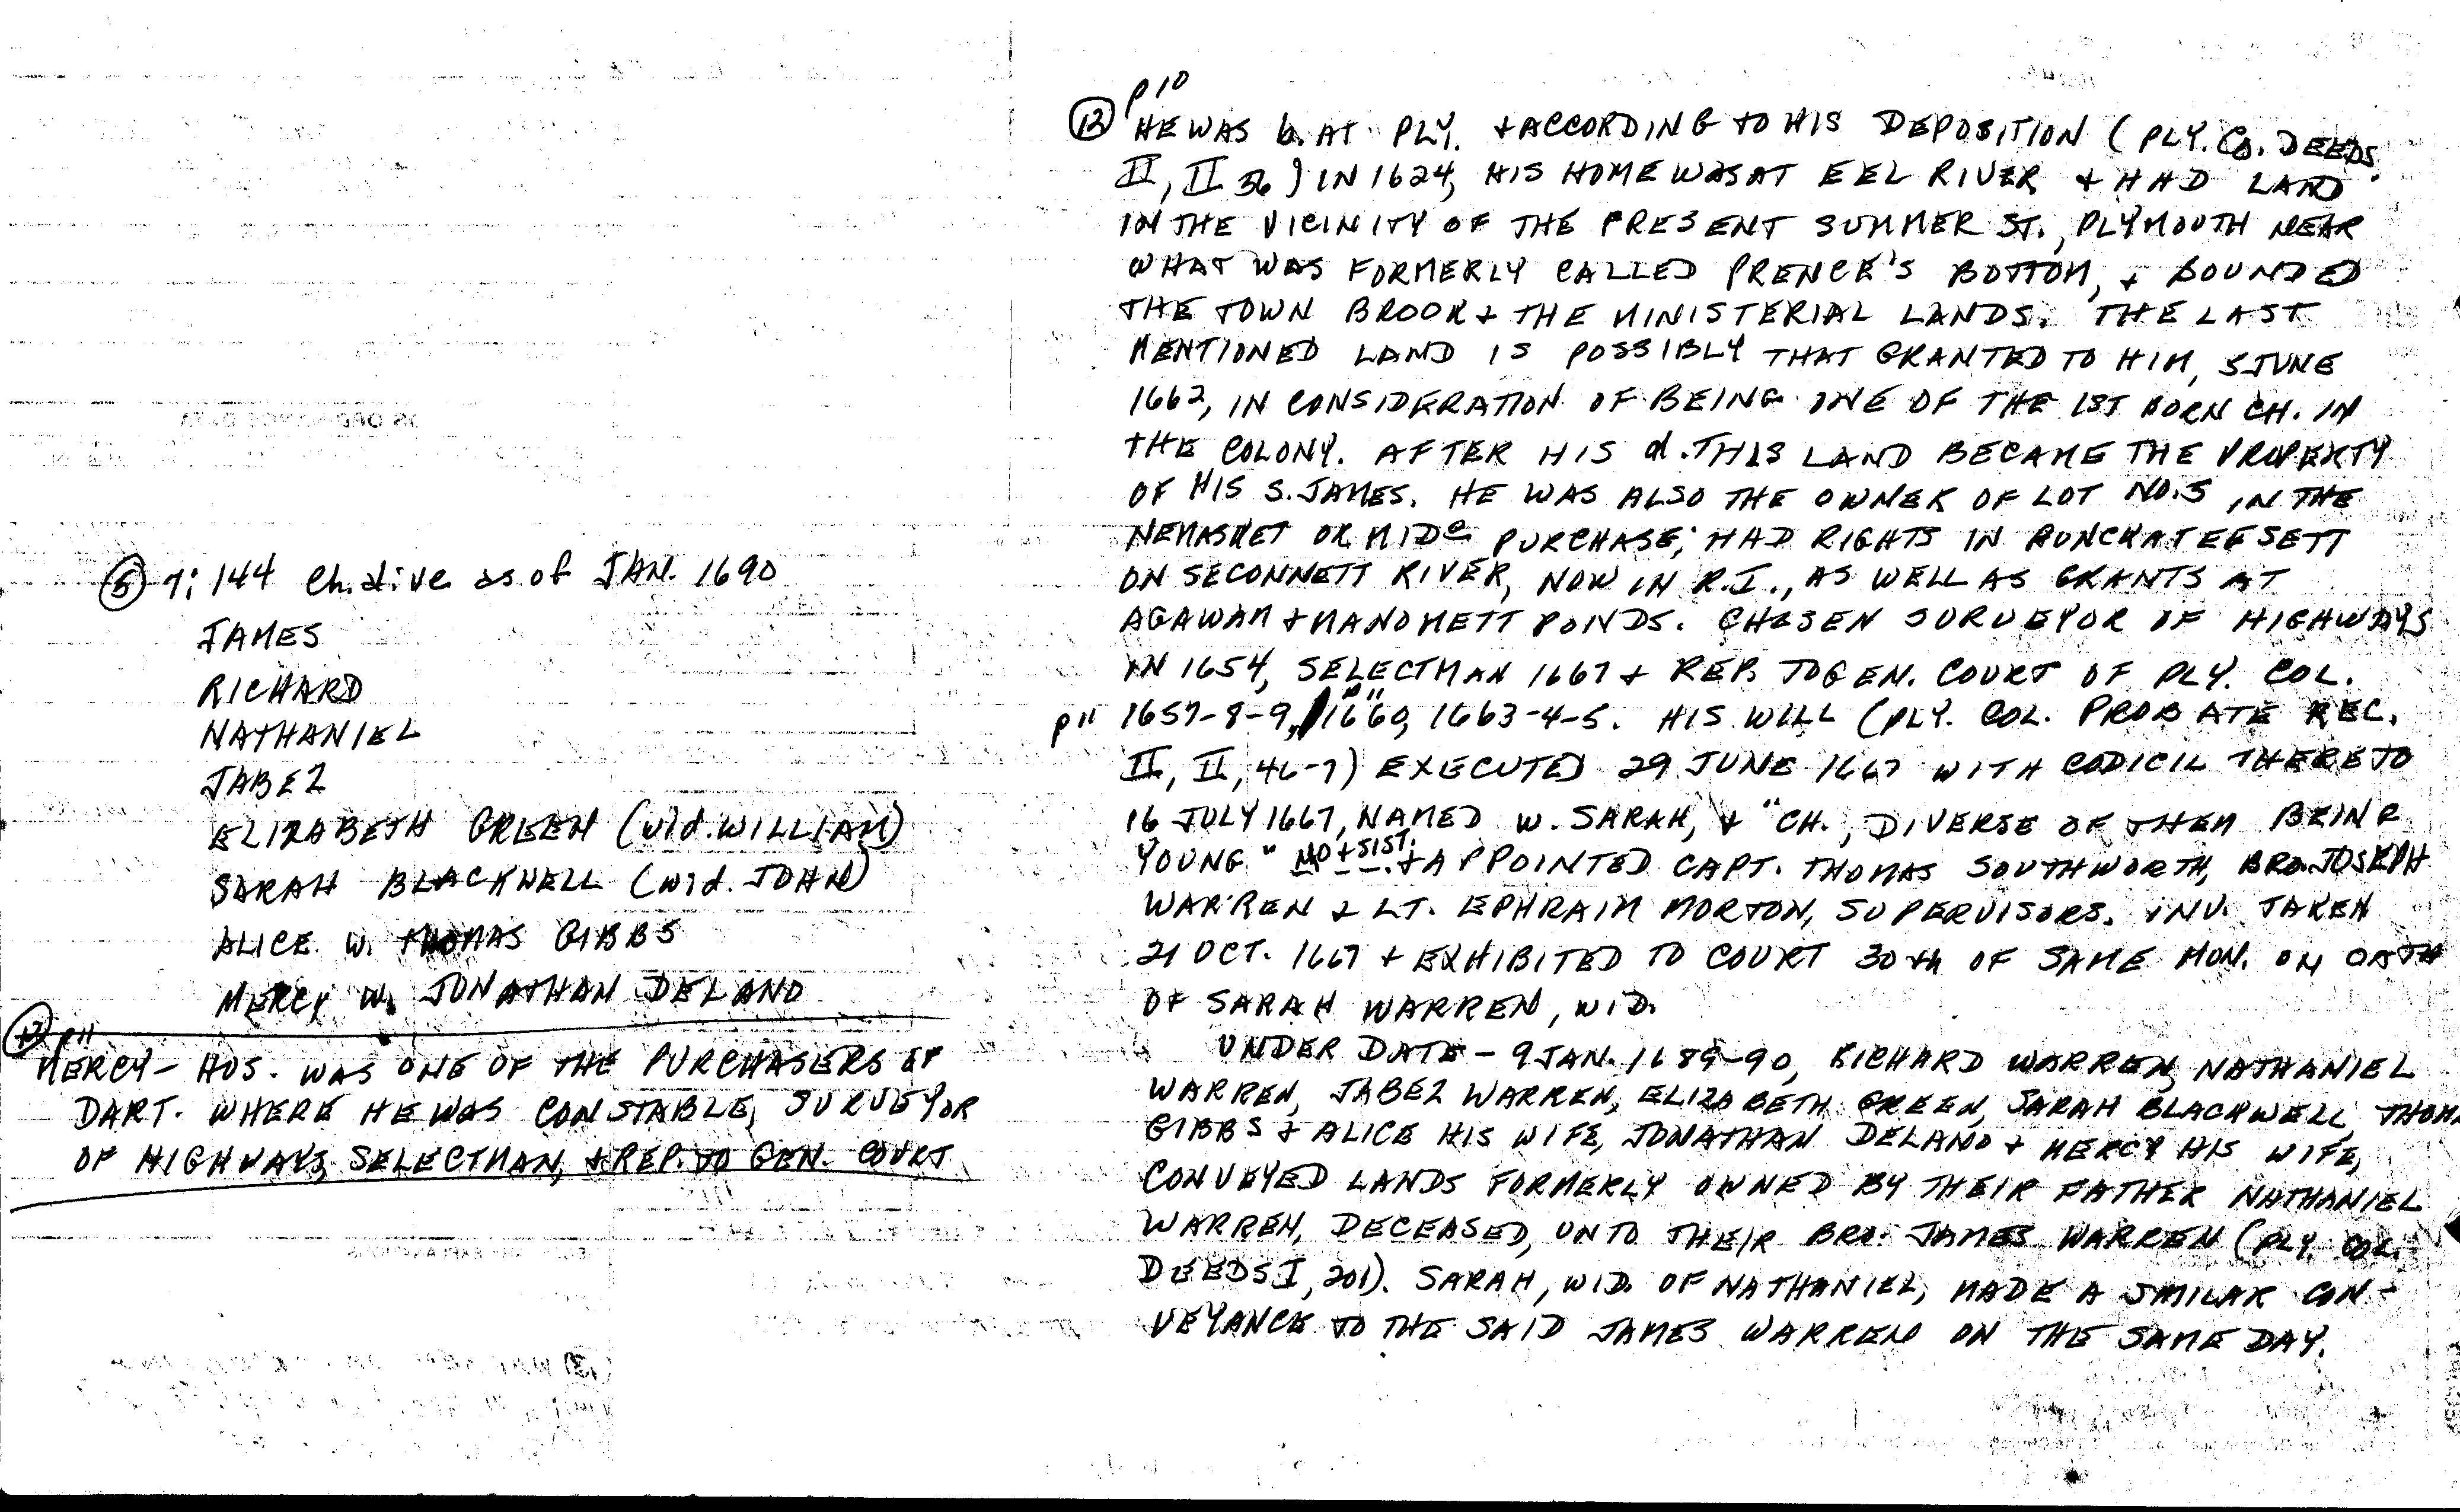 ⑤ 7:144 Ch. alive as of JAN. 1690
JAMES
RICHARD
NATHANIEL
JABEZ
ELIZABETH GREEN (wid. WILLIAM)
SARAH BLACKWELL (wid. JOHN)
ALICE W. THOMAS GIBBS
MERCY W. JONATHAN DELANO
⑫ p11
MERCY - HUS. WAS ONE OF THE PURCHASERS OF
DART. WHERE HE WAS CONSTABLE, SURVEYOR
OF HIGHWAYS, SELECTMAN, + REP. TO GEN. COURT
p10
⑫ HE WAS b. AT PLY. + ACCORDING TO HIS DEPOSITION (PLY. CO. DEEDS
II, II 36) IN 1624, HIS HOME WAS AT EEL RIVER + HAD LAND
IN THE VICINITY OF THE PRESENT SUMMER ST., PLYMOUTH NEAR
WHAT WAS FORMERLY CALLED PRENCE'S BOTTOM, + BOUNDED
THE TOWN BROOK + THE MINISTERIAL LANDS. THE LAST
MENTIONED LAND IS POSSIBLY THAT GRANTED TO HIM, 5 JUNE
1662, IN CONSIDERATION OF BEING ONE OF THE 1ST BORN CH. IN
THE COLONY. AFTER HIS d. THIS LAND BECAME THE PROPERTY
OF HIS S. JAMES. HE WAS ALSO THE OWNER OF LOT NO. 5 IN THE
NEMASKET OR MIDe PURCHASE; HAD RIGHTS IN PUNCKATEESETT
ON SECONNETT RIVER, NOW IN R.I., AS WELL AS GRANTS AT
AGAWAM + MANOMETT PONDS. CHOSEN SURVEYOR OF HIGHWAYS
IN 1654, SELECTMAN 1667 + REP. TO GEN. COURT OF PLY. COL.
p11 1657-8-9, p11 1660, 1663-4-5. HIS WILL (PLY. COL. PROBATE REC.
II, II, 46-7) EXECUTED 29 JUNE 1667 WITH CODICIL THERETO
16 JULY 1667, NAMED W. SARAH, + "CH., DIVERSE OF THEM BEING
YOUNG" MO + SIST. + APPOINTED CAPT. THOMAS SOUTHWORTH, BRO. JOSEPH
WARREN & LT. EPHRAIM MORTON, SUPERVISORS. INV. TAKEN
21 OCT. 1667 + EXHIBITED TO COURT 30th OF SAME MON. ON OATH
OF SARAH WARREN, WID.
UNDER DATE - 9 JAN. 1689-90, RICHARD WARREN, NATHANIEL
WARREN, JABEZ WARREN, ELIZABETH GREEN, SARAH BLACKWELL, THOM.
GIBBS + ALICE HIS WIFE, JONATHAN DELANO + MERCY HIS WIFE,
CONVEYED LANDS FORMERLY OWNED BY THEIR FATHER NATHANIEL
WARREN, DECEASED, UNTO THEIR BRO. JAMES WARREN (PLY. COL.
DEEDS I, 201). SARAH, WID. OF NATHANIEL, MADE A SMILAR CON-
VEYANCE TO THE SAID JAMES WARREN ON THE SAME DAY.